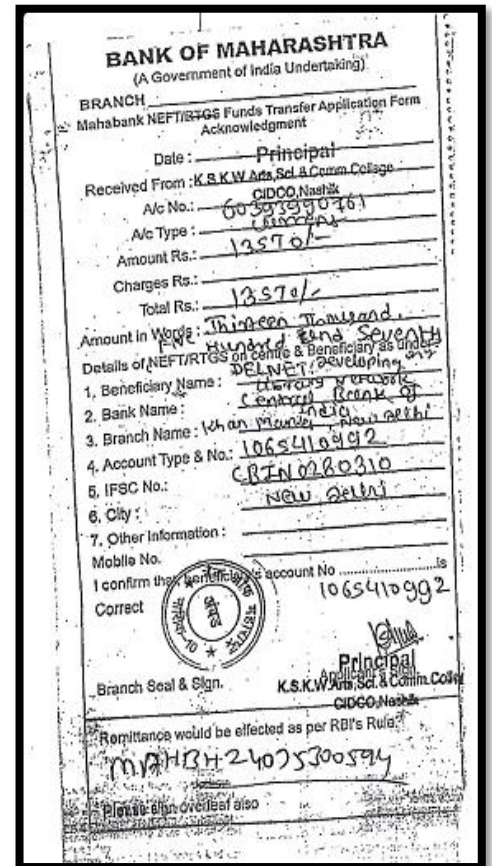 BANK OF MAHARASHTRA
(A Government of India Undertaking)
BRANCH
Mahabank NEFT/RTGS Funds Transfer Application Form
Acknowledgment
Date : Principal
Received From : K.S.K.W Arts, Sci. & Comm. College
CIDCO, Nashik
A/c No.: 60393990761
A/c Type :
Amount Rs.: 13570/-
Charges Rs.:
Total Rs.: 13570/-
Amount in Words : Thirteen Thousand.
Five Hundred And Seventy
Details of NEFT/RTGS on centre & Beneficiary as under
1. Beneficiary Name : DELNET, Developing
Library Network
2. Bank Name : Central Bank of
India
3. Branch Name : Khan Market, New Delhi
4. Account Type & No.: 1065410992
5. IFSC No.: CBIN0280310
6. City : New Delhi
7. Other Information :
Mobile No.
I confirm that beneficiary's account No ............is
Correct 1065410992
Principal
Branch Seal & Sign. Applicant's
K.S.K.W. Arts, Sci. & Comm. Colle
CIDCO, Nashik
Remittance would be effected as per RBI's Rule.
MAHBH24075300594
Please sign overleaf also